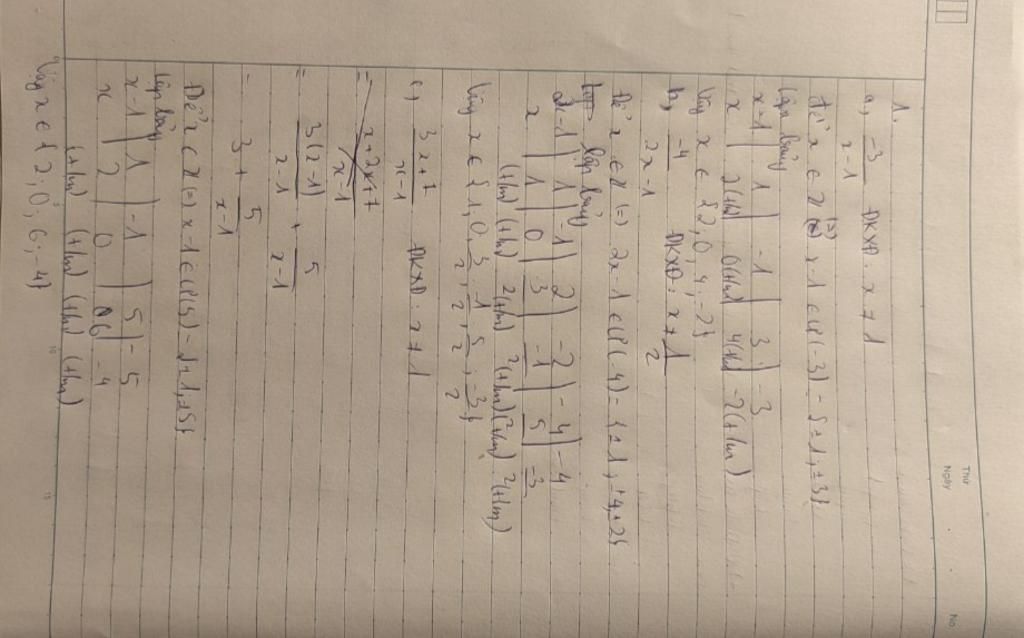 Thứ
Ngày
No
1.
a, -3/x-1 ĐKXĐ: x ≠ 1
Để x ∈ Z (=) x-1 ∈ Ư(-3) = {±1, ±3}
Lập bảng
x-1 | 1 | -1 | 3 | -3
x | 2(t/m) | 0(t/m) | 4(t/m) | -2(t/m)
Vậy x ∈ {2, 0, 4, -2}
b, -4/2x-1 ĐKXĐ: x ≠ 1/2
Để x ∈ Z (=) 2x-1 ∈ Ư(-4) = {±1, ±4, ±2}
lập bảng
2x-1 | 1 | -1 | 2 | -2 | -4 | -4
x | 1 | 0 | 3/2 | -1/2 | 5/2 | -3/2
(t/m) (t/m) (t/m) (t/m) (t/m) (t/m)
Vậy x ∈ {1, 0, 3/2, 1/2, 5/2, -3/2}
c, 3x+2/x-1 ĐKXĐ: x ≠ 1
= x+2x+7/x-1
= 3(x-1)/x-1 + 5/x-1
= 3 + 5/x-1
Để x ∈ Z (=) x-1 ∈ Ư(5) = {±1, ±5}
Lập bảng
x-1 | 1 | -1 | 5 | -5
x | 2 | 0 | 6 | -4
(t/m) (t/m) (t/m) (t/m)
Vậy x ∈ {2; 0; 6; -4}